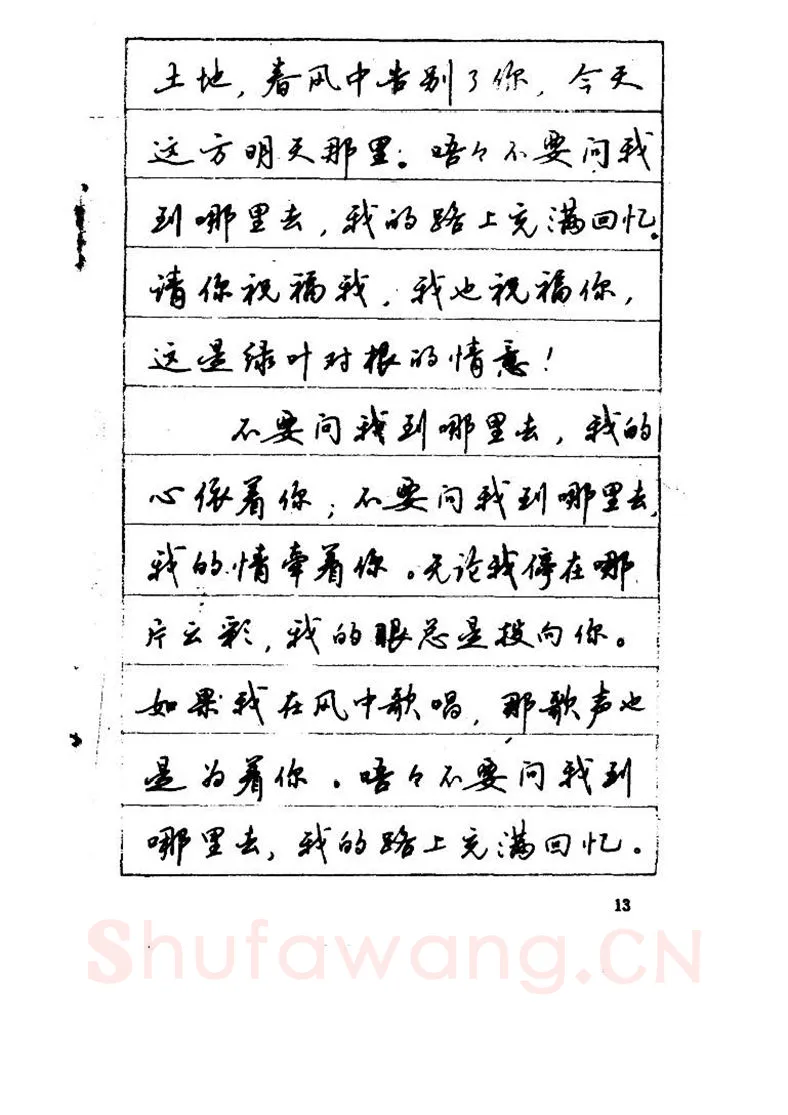 土地，春风中告别了你，今天
这方明天那里。唔々不要问我
到哪里去，我的路上充满回忆。
请你祝福我，我也祝福你，
这是绿叶对根的情意！
不要问我到哪里去，我的
心依着你；不要问我到哪里去，
我的情牵着你。无论我停在哪
片云彩，我的眼总是投向你。
如果我在风中歌唱，那歌声也
是为着你。唔々不要问我到
哪里去，我的路上充满回忆。
13
Shufawang.CN